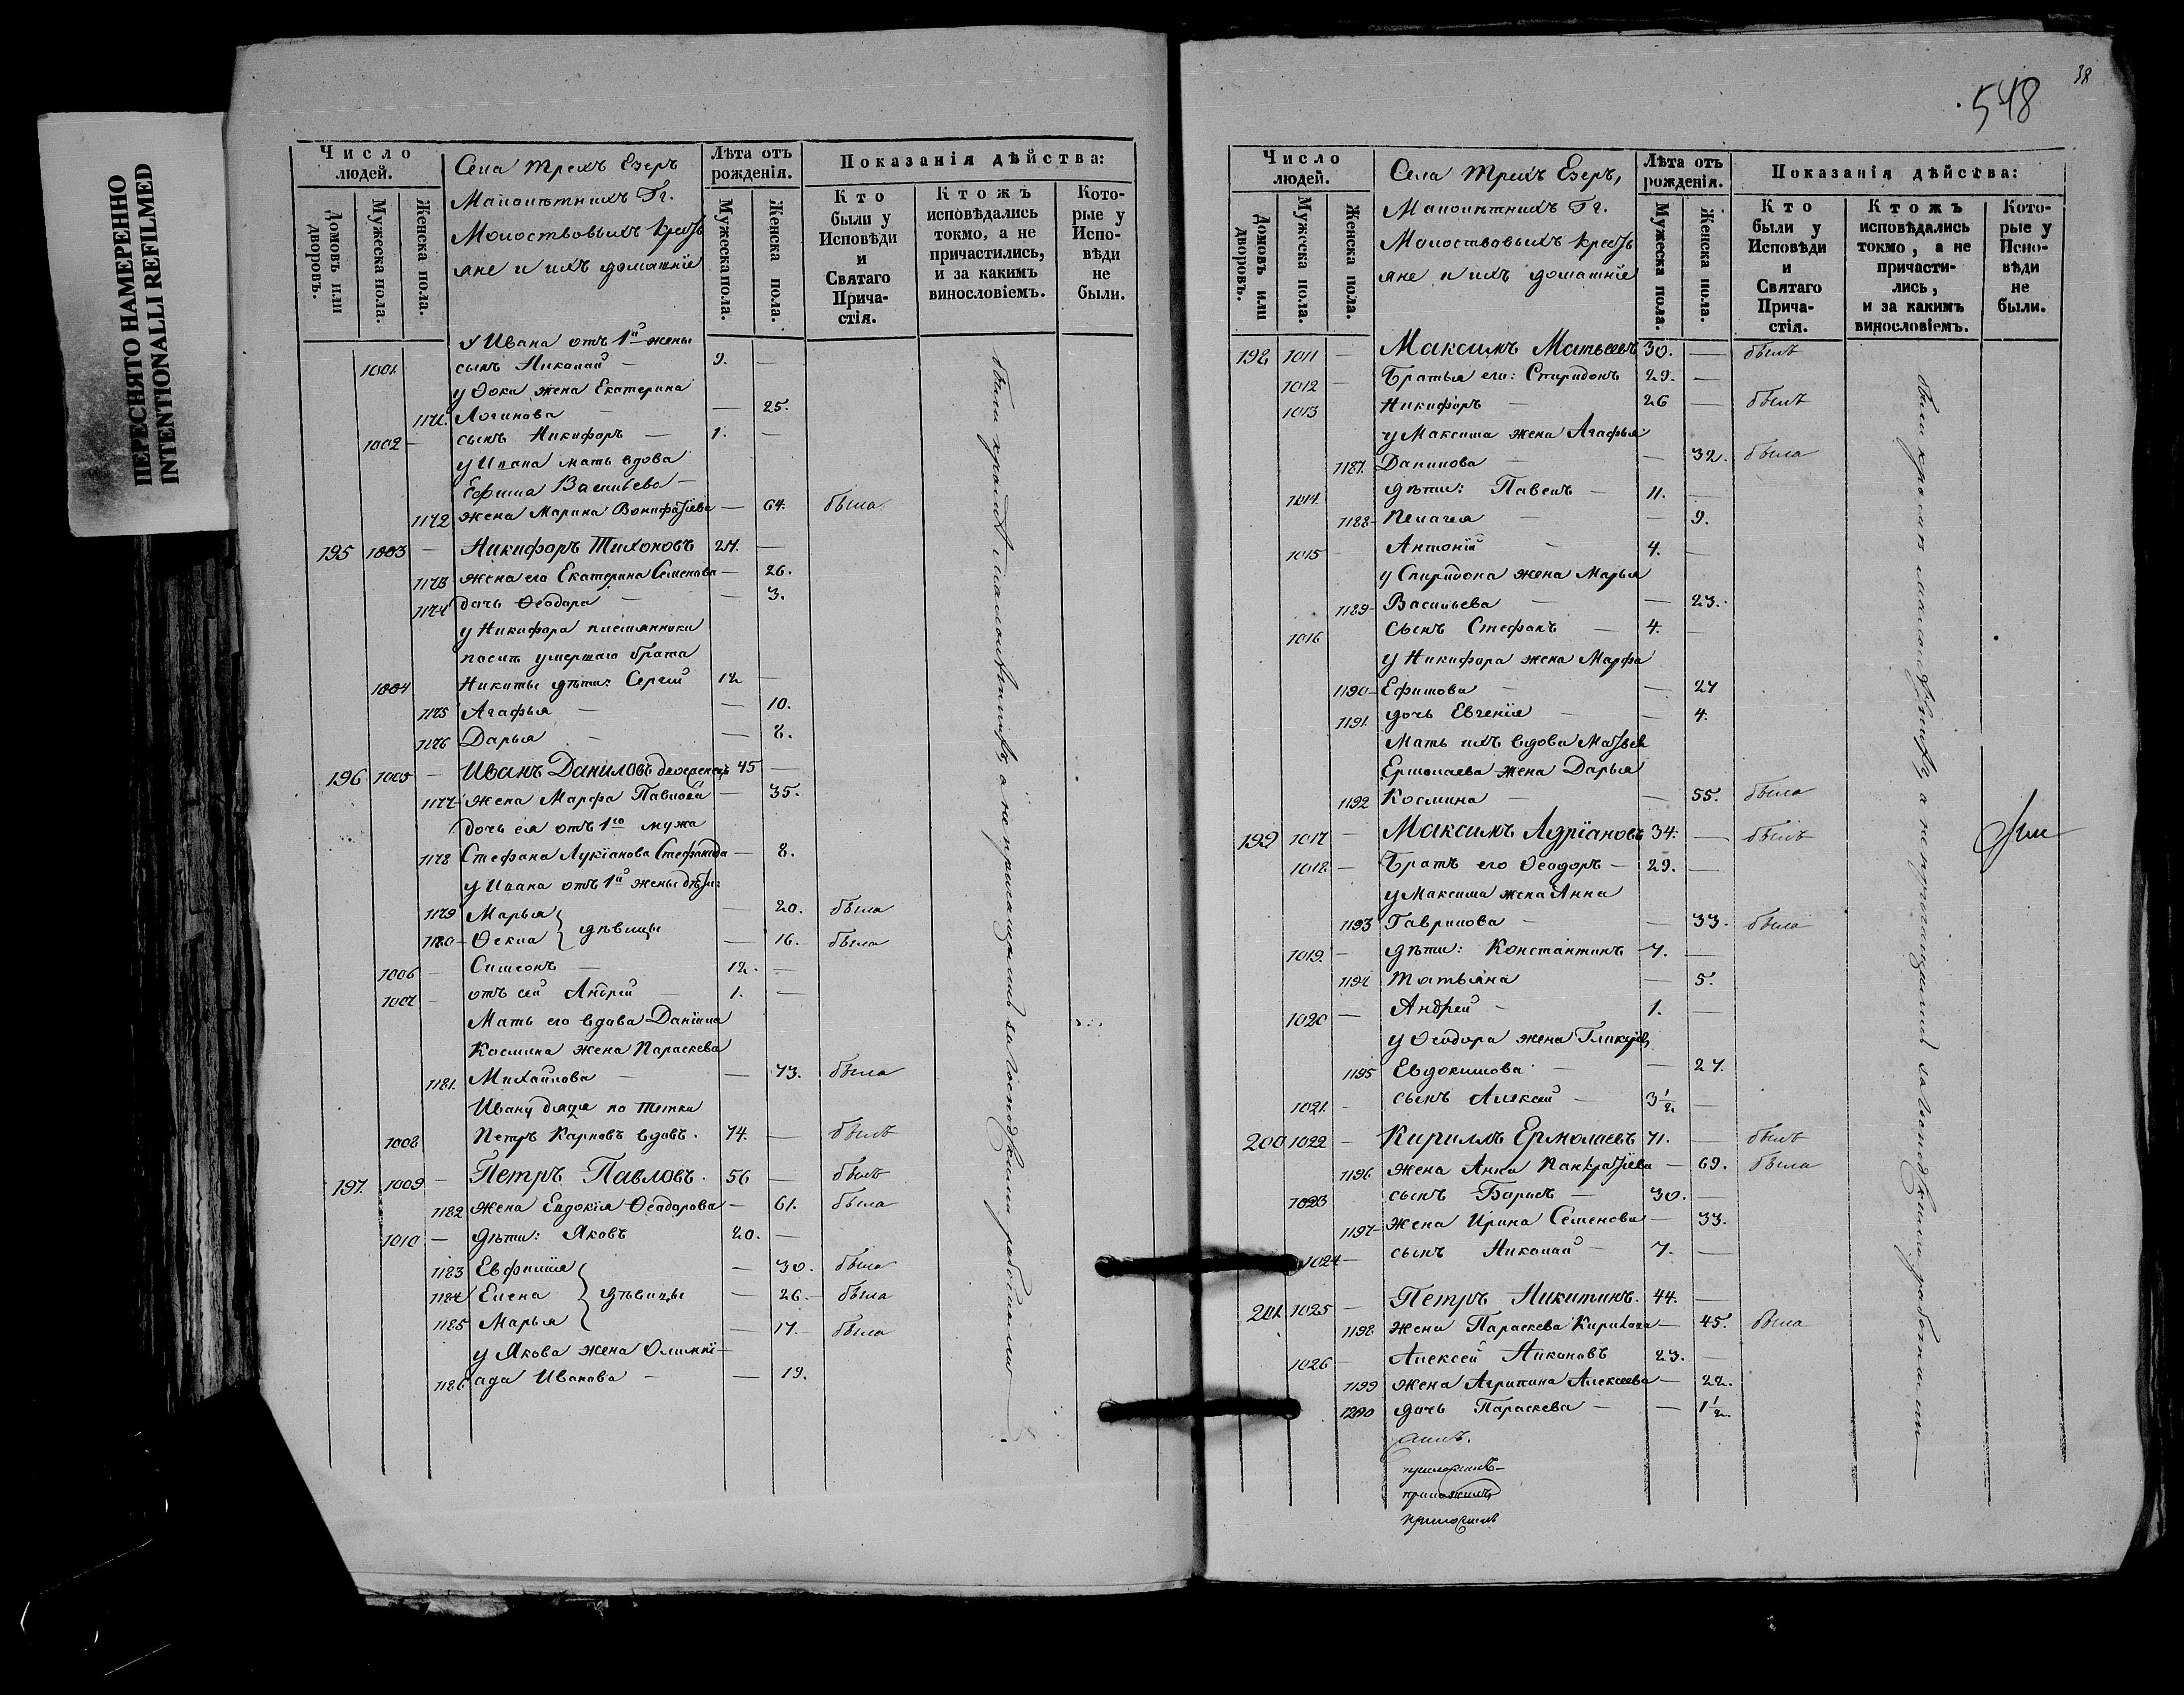 ПЕРЕСНЯТО НАМЕРЕННО
INTENTIONALLI REFILMED
Число людей.
Домовъ или дворовъ.
Мужеска пола.
Женска пола.
Села Трехъ Езеръ
Малолѣтнихъ Гг.
Молоствовыхъ кресть
яне и ихъ домашніе
Лѣта отъ рожденія.
Мужеска пола.
Женска пола.
Показанія дѣйства:
Кто были у Исповѣди и Святаго Прича-стія.
Ктожъ исповѣдались токмо, а не причастились, и за какимъ винословіемъ.
Кото-рые у Испо-вѣди не были.
У Ивана отъ 1й жены
1001. сынъ Николай — 9. —
у Фоки жена Екатерина
1171. Логинова — — 25.
1002 — сынъ Никифоръ — 1. —
у Ивана мать вдова
Ефима Васильева —
1172 жена Марина Вонифатіева — 64. была
195 1003 — Никифоръ Тихоновъ 24. —
1173 жена его Екатерина Семенова — 26.
1174 дочь Ѳеодора — — 3.
у Никифора племянники
послѣ умершаго брата
1004 Никиты дѣти: Сергей 12 —
1175 Агафья — — 10.
1176 Дарья — — 8.
196 1005 — Иванъ Даниловъ двоеженецъ 45 —
1177 жена Марфа Павлова — 35.
дочь ея отъ 1го мужа
1178 Стефана Лукіанова Стефанида — 8.
у Ивана отъ 1й жены дѣти:
1179 Марья } — 20. была
1180 — Ѳекла } дѣвицы — 16. была
1006 — Симеонъ — 12. —
1007 — отъ сей Андрей — 1. —
Мать его вдова Даніила
Космина жена Параскева
1181. Михайлова — — 73. была
Ивану дядя по тетке
1008 Петръ Карповъ вдовъ. 74. — былъ
197. 1009 — Петръ Павловъ. 56 — былъ
1182 жена Евдокія Ѳеодорова — 61. была
1010 — дѣти: Яковъ 20. —
1183 Евфимія } — 30. была
1184 Елена } дѣвицы — 26. — была
1185 Марья } — 17. — была
у Якова жена Олимпі-
1186 ада Иванова — — 19.
были кромѣ малолѣтнихъ а не причащались за господскими работами
38
548
Число людей.
Домовъ или дворовъ.
Мужеска пола.
Женска пола.
Села Трехъ Езеръ,
Малолѣтнихъ Гг.
Молоствовыхъ кресть
яне и ихъ домашніе
Лѣта отъ рожденія.
Мужеска пола.
Женска пола.
Показанія дѣйства:
Кто были у Исповѣди и Святаго Прича-стія.
Ктожъ исповѣдались токмо, а не причасти-лись, и за какимъ винословіемъ.
Кото-рые у Испо-вѣди не были.
198 1011 — Максимъ Матвеевъ 30. — былъ
1012 — Братья его: Спиридонъ 29. —
1013 Никифоръ — 26 — былъ
у Максима жена Агафья
1187. Данилова — — 32. была
1014. дѣти: Павелъ — 11. —
1188 — Пелагея — — 9.
1015 — Антоній — 4. —
у Спиридона жена Марья
1189 — Васильева — — 23.
1016 Сынъ Стефанъ — 4. —
у Никифора жена Марфа
1190 — Ефимова — — 27
1191. дочь Евгенія — — 4.
Мать ихъ вдова Матвея
Ермолаева жена Дарья
1192 Космина — — 55. была
199 1017 — Максимъ Адріановъ 34. — былъ
1018 — Братъ его Ѳеодоръ — 29. —
у Максима жена Анна
1193 Гаврилова — — 33. была
1019. — дѣти: Константинъ — 7. —
1194 Татьяна — 5.
1020 — Андрей — 1. —
у Ѳеодора жена Гликерія
1195 Евдокимова — — 27.
1021. — сынъ Алексей — 3½ —
200 1022 — Кириллъ Ермолаевъ 71. — былъ
1196 жена Анна Панкратіева — 69. была
1023 сынъ Борисъ — 30. —
1197 — жена Ирина Семенова — 33.
1024 — сынъ Николай — 7. —
201. 1025 — Петръ Никитинъ. 44. —
1198 жена Параскева Кирилова — 45. была
1026 — Алексей Никоновъ 23. —
1199 жена Агрипина Алексеева — 22.
1200 дочь Параскева — — 1½
были кромѣ малолѣтнихъ а не причащались за господскими работами